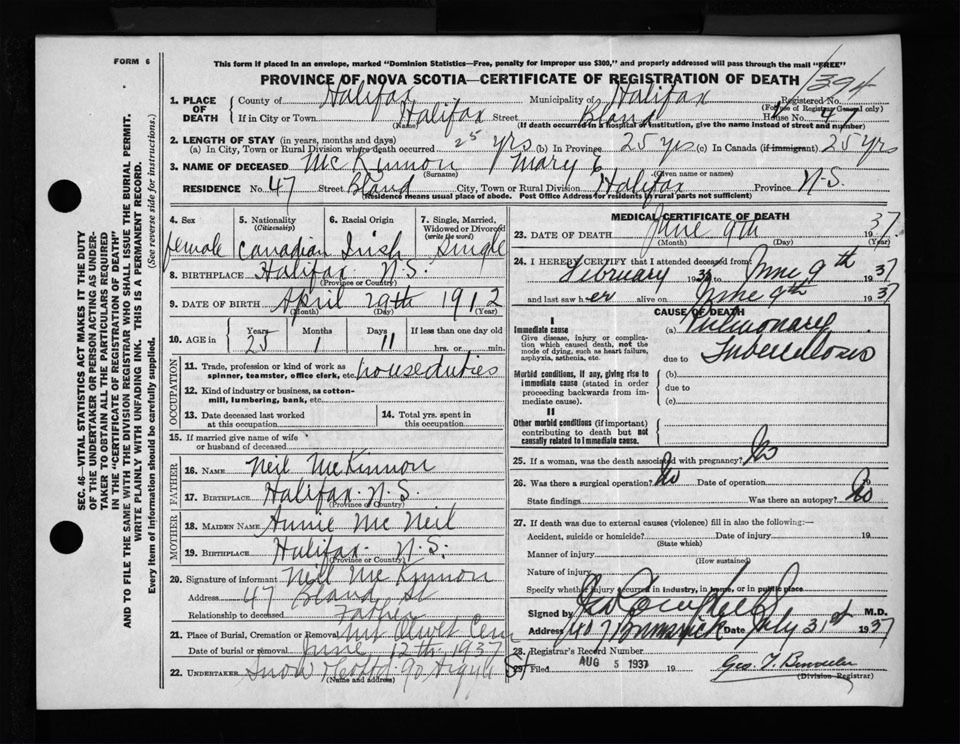 FORM 6
This form if placed in an envelope, marked "Dominion Statistics—Free, penalty for improper use $300," and properly addressed will pass through the mail "FREE"
PROVINCE OF NOVA SCOTIA—CERTIFICATE OF REGISTRATION OF DEATH
1394
1. PLACE OF DEATH
County of Halifax Municipality of Halifax Registered No.
(For use of Registrar General only)
If in City or Town Halifax Street Bland House No. 47
(Name) (If death occurred in a hospital or institution, give the name instead of street and number)
2. LENGTH OF STAY (in years, months and days)
(a) In City, Town or Rural Division where death occurred 25 yrs (b) In Province 25 yrs (c) In Canada (if immigrant) 25 yrs
3. NAME OF DECEASED McKinnon Mary E
(Surname) (Given name or names)
RESIDENCE No. 47 Street Bland City, Town or Rural Division Halifax Province N.S.
(Residence means usual place of abode. Post Office Address for residents in rural parts not sufficient)
4. Sex
female
5. Nationality
(Citizenship)
Canadian
6. Racial Origin
Irish
7. Single, Married, Widowed or Divorced
(write the word)
Single
8. BIRTHPLACE Halifax N.S.
(Province or Country)
9. DATE OF BIRTH April 29th 1912
(Month) (Day) (Year)
10. AGE in
Years 25
Months 1
Days 11
If less than one day old
hrs. or min.
OCCUPATION
11. Trade, profession or kind of work as spinner, teamster, office clerk, etc. house duties
12. Kind of industry or business, as cotton-mill, lumbering, bank, etc.
13. Date deceased last worked at this occupation
14. Total yrs. spent in this occupation
15. If married give name of wife or husband of deceased
FATHER
16. NAME Neil McKinnon
17. BIRTHPLACE Halifax N.S.
(Province or Country)
MOTHER
18. MAIDEN NAME Annie McNeil
19. BIRTHPLACE Halifax N.S.
(Province or Country)
20. Signature of informant Neil McKinnon
Address 47 Bland St
Relationship to deceased Father
21. Place of Burial, Cremation or Removal Mt Olivet Cem
Date of burial or removal June 12th 1937
22. UNDERTAKER Snow & Co Ltd 90 Argyle St
(Name and address)
MEDICAL CERTIFICATE OF DEATH
23. DATE OF DEATH June 9th 1937
(Month) (Day) (Year)
24. I HEREBY CERTIFY that I attended deceased from
February 19 to June 9th 1937
and last saw her alive on June 9th 1937
CAUSE OF DEATH
I
Immediate cause
Give disease, injury or complication which caused death, not the mode of dying, such as heart failure, asphyxia, asthenia, etc.
(a) Pulmonary
due to Tuberculosis
Morbid conditions, if any, giving rise to immediate cause (stated in order proceeding backwards from immediate cause).
(b)
due to
(c)
II
Other morbid conditions (if important) contributing to death but not causally related to immediate cause.
25. If a woman, was the death associated with pregnancy? No
26. Was there a surgical operation? No Date of operation 19
State findings Was there an autopsy? No
27. If death was due to external causes (violence) fill in also the following:—
Accident, suicide or homicide? Date of injury 19
(State which)
Manner of injury
(How sustained)
Nature of injury
Specify whether injury occurred in Industry, in home, or in public place
Signed by M.D.
Address 407 Brunswick Date July 31st 1937
28. Registrar's Record Number
29. Filed AUG 5 1937 19
(Division Registrar)
SEC. 46—VITAL STATISTICS ACT MAKES IT THE DUTY
OF THE UNDERTAKER OR PERSON ACTING AS UNDER-
TAKER TO OBTAIN ALL THE PARTICULARS REQUIRED
IN THE "CERTIFICATE OF REGISTRATION OF DEATH"
AND TO FILE THE SAME WITH THE DIVISION REGISTRAR WHO SHALL ISSUE THE BURIAL PERMIT.
WRITE PLAINLY WITH UNFADING INK. THIS IS A PERMANENT RECORD.
Every item of information should be carefully supplied. (See reverse side for instructions.)